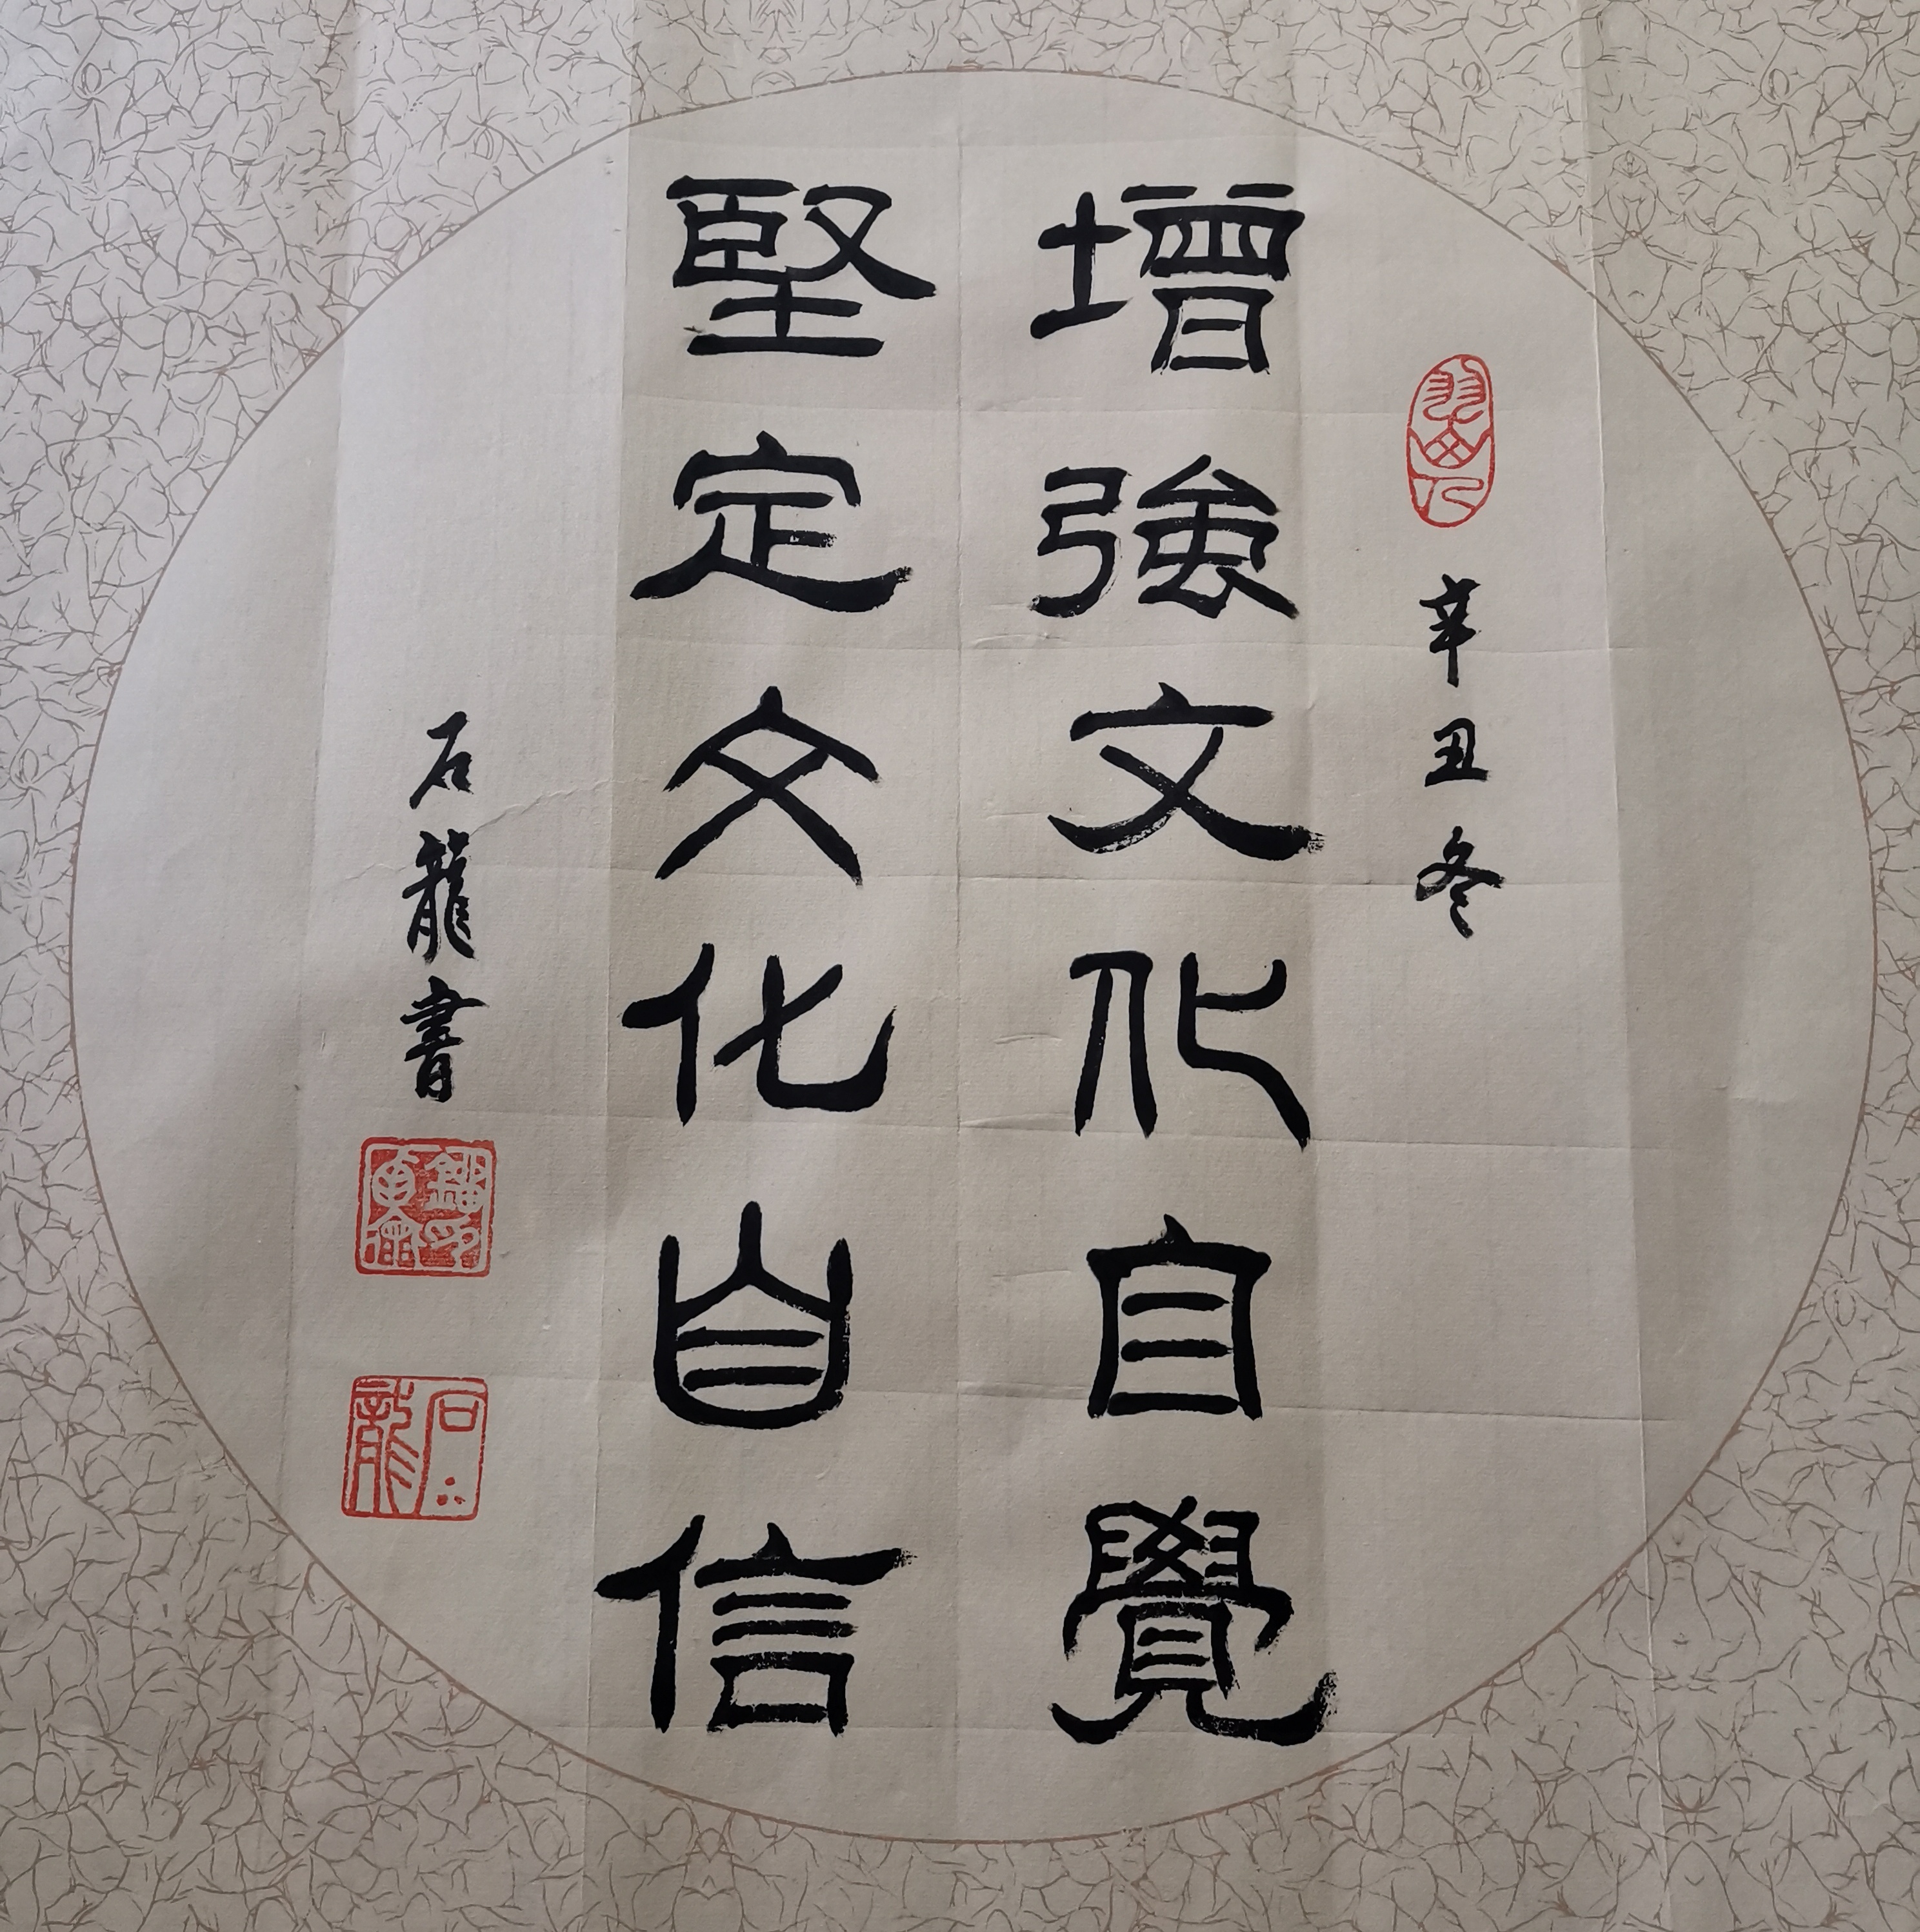 辛丑冬
增強文化自覺
堅定文化自信
石龍書
石龍